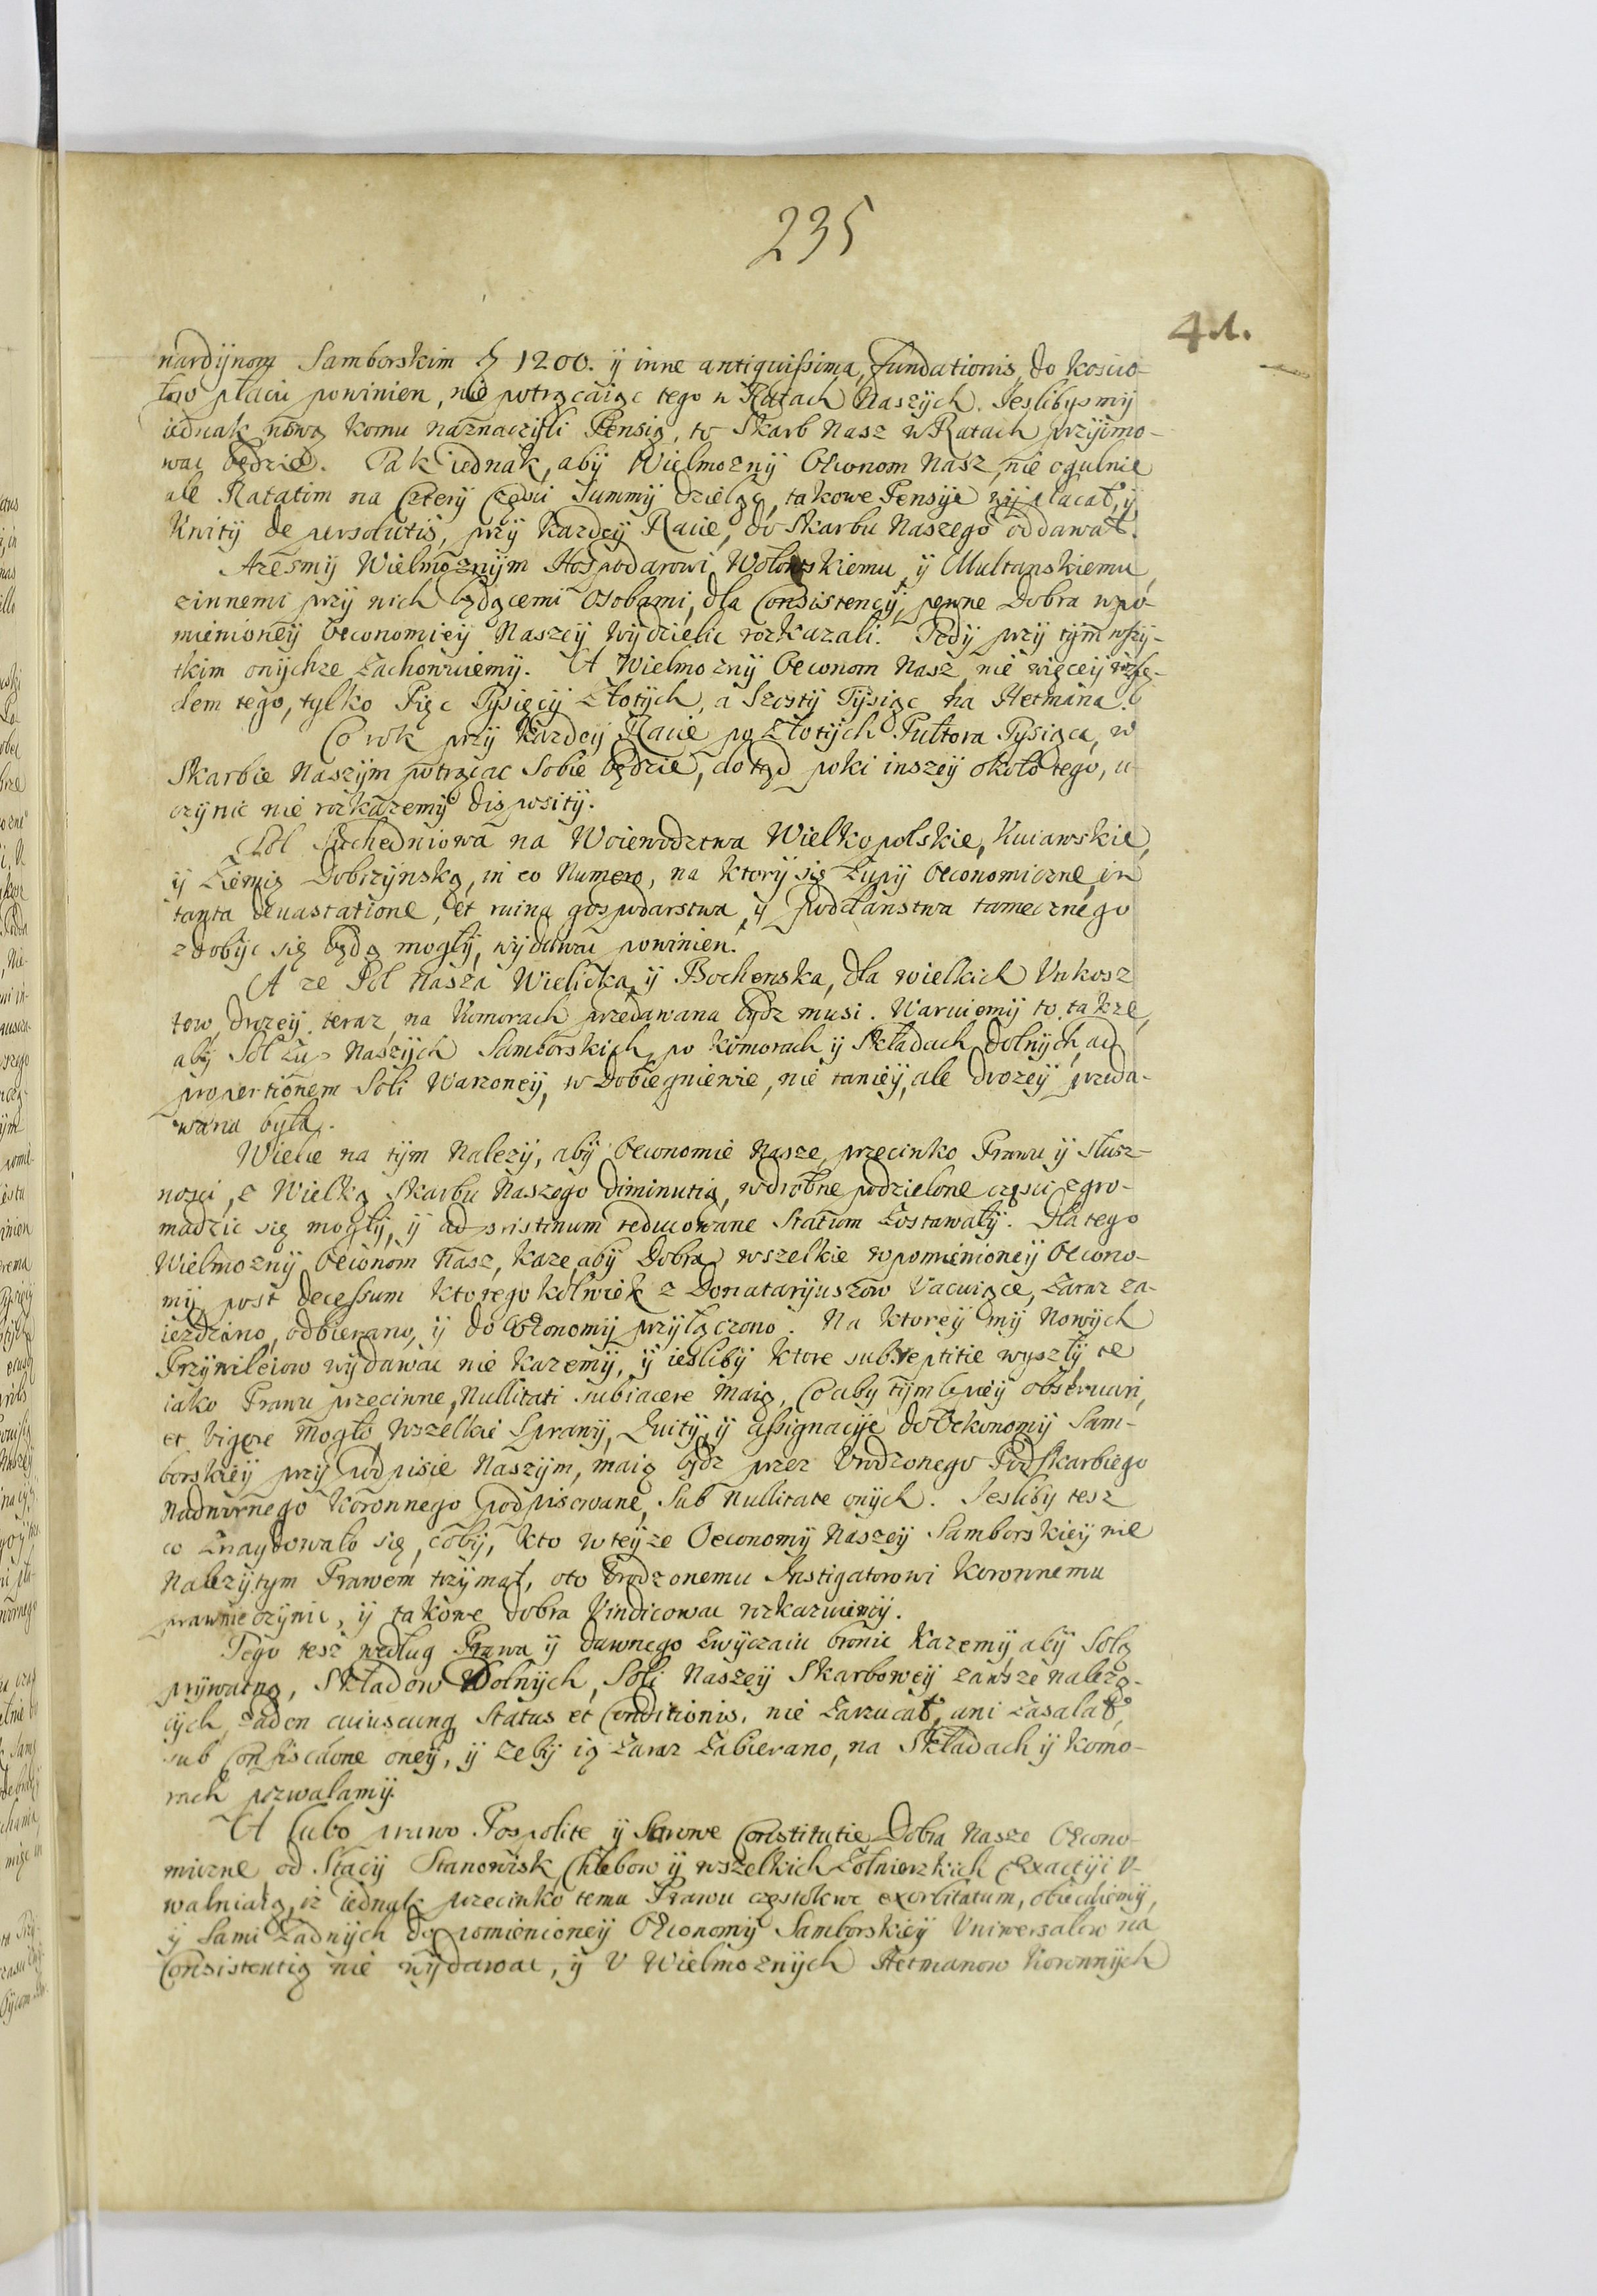 235
41.
nardijnom Samborskim fl 1200. ij inne antiquissima, fundationis, do Koscio-
łow płacic powinien, nie potrącaiąc tego w Ratach Naszÿch. Jeslibysmÿ
iednak nową komu naznaczÿli Pensią, to Skarb Nasz w Ratach przÿimo-
wac będzie. Tak iednak, abÿ Wielmoznÿ Oeconom Nasz, nie ogulnie
ale Ratatim na Czterÿ Częsci Summÿ dzieląc, takowe Pensÿe wÿpłacał, ÿ
Kwitÿ de persolutis, przÿ kazdeÿ Racie, do Skarbu Naszego oddawał.
Azesmÿ Wielmoznÿm Hospodarowi Wołoskiemu, ÿ Multanskiemu,
zinnemi przÿ nich będącemi Osobami, dla Consistencÿi, pewne Dobra wpo-
mienioneÿ Oeconomieÿ Naszeÿ wÿdzielic rozkazali. Tedÿ przÿ tÿm wszÿ-
tkim onÿchze Zachowuiemÿ. A Wielmoznÿ Oeconom Nasz, nie więceÿ wzglę-
dem tego, tylko Pięc Tÿsięcÿ Złotÿch, a Szostÿ Tÿsiąc na Hetmana.
Co rok przÿ kazdeÿ Racie po Złotÿch Pułtora Tÿsiąca, w
Skarbie Naszÿm potrącac Sobie będzie, do tąd poki inszeÿ około tego, u-
czÿnic nie rozkazemÿ disposicÿ.
Sol Suchedniowa na Woiewodztwa Wielkopolskie, Kuiawskie,
ÿ Ziemię Dobrzÿnską, in eo Numero, na ktorÿ się Zupÿ Oeconomiczne, in
tanta devastatione, et ruina gospodarstwa, ÿ poddanstwa tamecznego
zdobÿc się będą mogłÿ, wÿdawac powinien.
A ze Sol Nasza Wielicka, ÿ Bochenska, dla wielkich Unkosz
tow, drozeÿ teraz na Komorach przedawana bÿdz musi. Waruiemÿ to także,
abÿ Sol Zup Naszÿch Samborskich, po komorach ÿ Składach Dolnÿch, ad
proportionem Soli Warzoneÿ, w Dobiegniewie, nie tanieÿ, ale drozeÿ przeda-
wana była.
Wiele na tÿm Nalezÿ, abÿ Oeconomie Nasze, przeciwko Prawu ÿ słusz-
nosci, z Wielką Skarbu Naszego diminutią, wdrobne podzielone częsci zgro-
madzic się mogłÿ, ÿ ad pristinum reducowane Statum Zostawałÿ. Dla tego
Wielmoznÿ Oeconom Nasz, kaze, abÿ Dobra wszelkie wpomienioneÿ Oecono-
mÿ, post decessum ktoregokolwiek z Donatarÿuszow Vacuiące, Zaraz za-
iezdzano, odbierano, ÿ do Oekonomÿ przÿłączono. Na ktoreÿ mÿ Nowÿch
Przÿwileiow wÿdawac nie kazemÿ, ÿ iesliby ktore subreptitie wyszłÿ, te
iako Prawu przeciwne, Nullitati subiacere maią, Co aby tÿm lepieÿ observari,
et vigere mogło, Wszelkie Sprawÿ, Quitÿ, ÿ assignacÿe do Oekonomÿ Sam-
borskieÿ przÿ podpisie Naszÿm, maią bÿdz przez Urodzonego Podskarbiego
Nadwornego Koronnego podpisowane, Sub Nullitate onÿch. Jesliby tesz
co Znaÿdowało się, cobÿ, kto wteÿze Oeconomÿ Naszeÿ Samborskieÿ nie
Nalezÿtym Prawem trzÿmał, oto Urodzonemu Instigatorowi Koronnemu
prawnie czÿnic, ÿ takowe dobra Vindicowac rozkazuiemÿ.
Tego tesz według Prawa ÿ dawnego Zwÿczaiu bronic kazemÿ, abÿ Solą
prÿwatną, Składow Dolnÿch, Soli Naszeÿ Skarboweÿ zawsze nalezą-
cÿch, Zaden cuiuscunq Status et Conditionis, nie Zarzucał, ani Zasalał,
sub Confiscatione oneÿ, ÿ zebÿ ią Zaraz Zabierano, na Składach ÿ komo-
rach pozwalamÿ.
A lubo prawo Pospolite ÿ Surowe Constitutie, Dobra Nasze Oecono-
miczne od Stacÿ Stanowisk Chlebow ÿ wszelkich Zołnierzkich Exactÿi V-
walniaią, iz iednak przeciwko temu Prawu częstokroc exorbitatum, obiecuiemÿ,
ÿ Sami Zadnÿch do pomienioneÿ Oekonomÿ Samborskieÿ Vniwersałow na
Consistentią nie wÿdawac, ÿ V Wielmoznÿch Hetmanow Koronnÿch